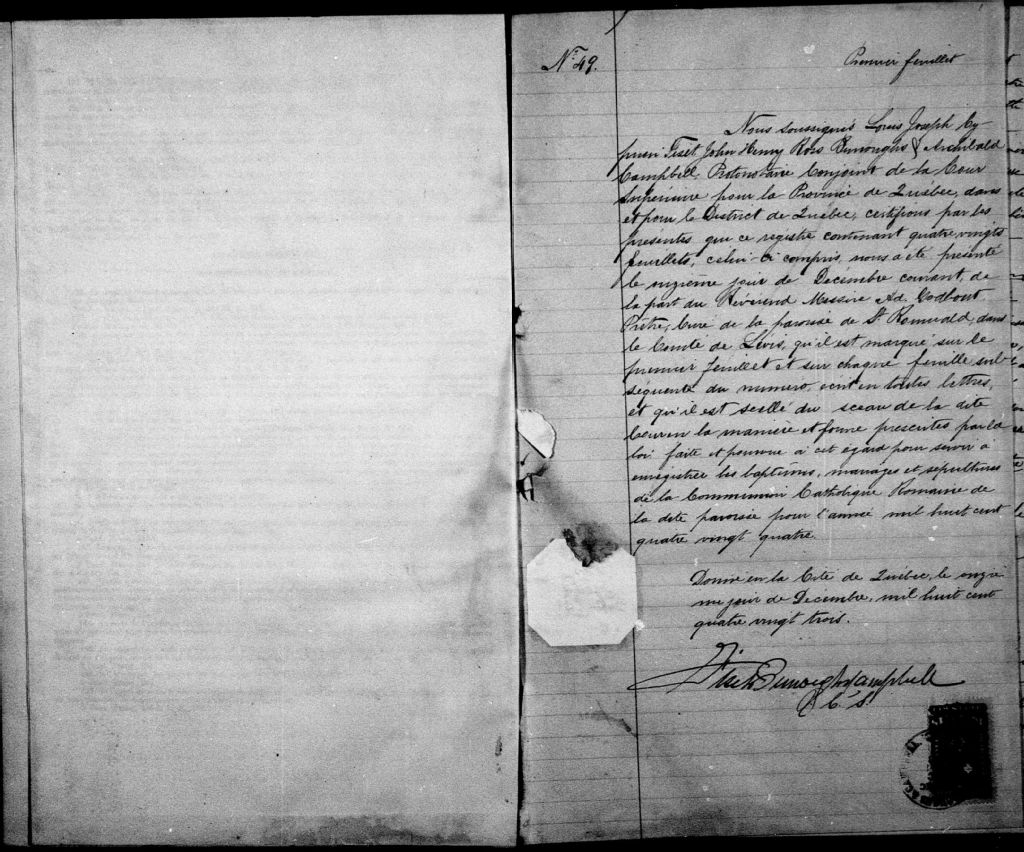 No. 49.
Premier feuillet
Nous soussignés Louis Joseph Cy-
prien Fiset John Henry Ross Burroughs & Archibald
Campbell, Protonotaire Conjoint de la Cour
Supérieure pour la Province de Québec, dans
et pour le District de Québec, certifions par les
présentes que ce registre contenant quatre vingts
feuillets, celui-ci compris, nous a été présenté
le onzième jour de Décembre courant, de
la part du Révérend Messire Ad. Godbout
Prêtre, Curé de la paroisse de St Romuald, dans
le Comté de Lévis, qu'il est marqué sur le
premier feuillet et sur chaque feuille sub-
séquente du numéro, écrit en toutes lettres,
et qu'il est scellé du sceau de la dite
Cour en la manière et forme prescrites par la
loi faite et pourvue à cet égard pour servir à
enregistrer les baptêmes, mariages et sépultures
de la Communion Catholique Romaine de
la dite paroisse pour l'année mil huit cent
quatre vingt quatre.
Donné en la Cité de Québec, le onziè
me jour de Décembre, mil huit cent
quatre vingt trois.
Fiset Burroughs Campbell
P. C. S.